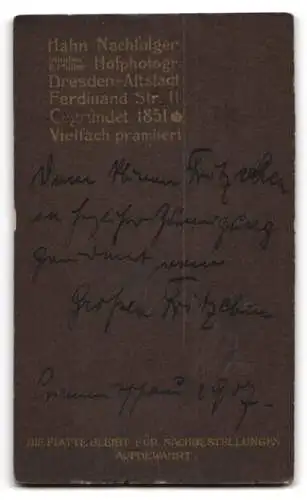 Hahn Nachfolger
Hofphotogr.
Dresden-Altstadt
Ferdinand Str. 11
Gegründet 1851
Vielfach prämiiert
Dem kleinen Fritzchen
in herzlicher Zuneigung
gewidmet vom
Großen Fritzchen
1907.
DIE PLATTE BLEIBT FÜR NACHBESTELLUNGEN
AUFBEWAHRT